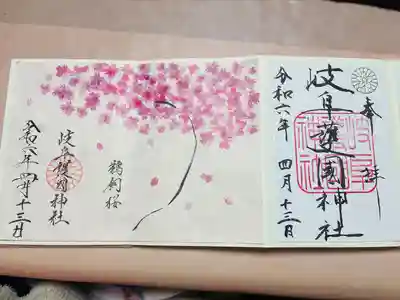 奉拝
岐阜護國神社
令和六年 四月十三日
鵜飼桜
岐阜護國神社
令和六年 四月十三日